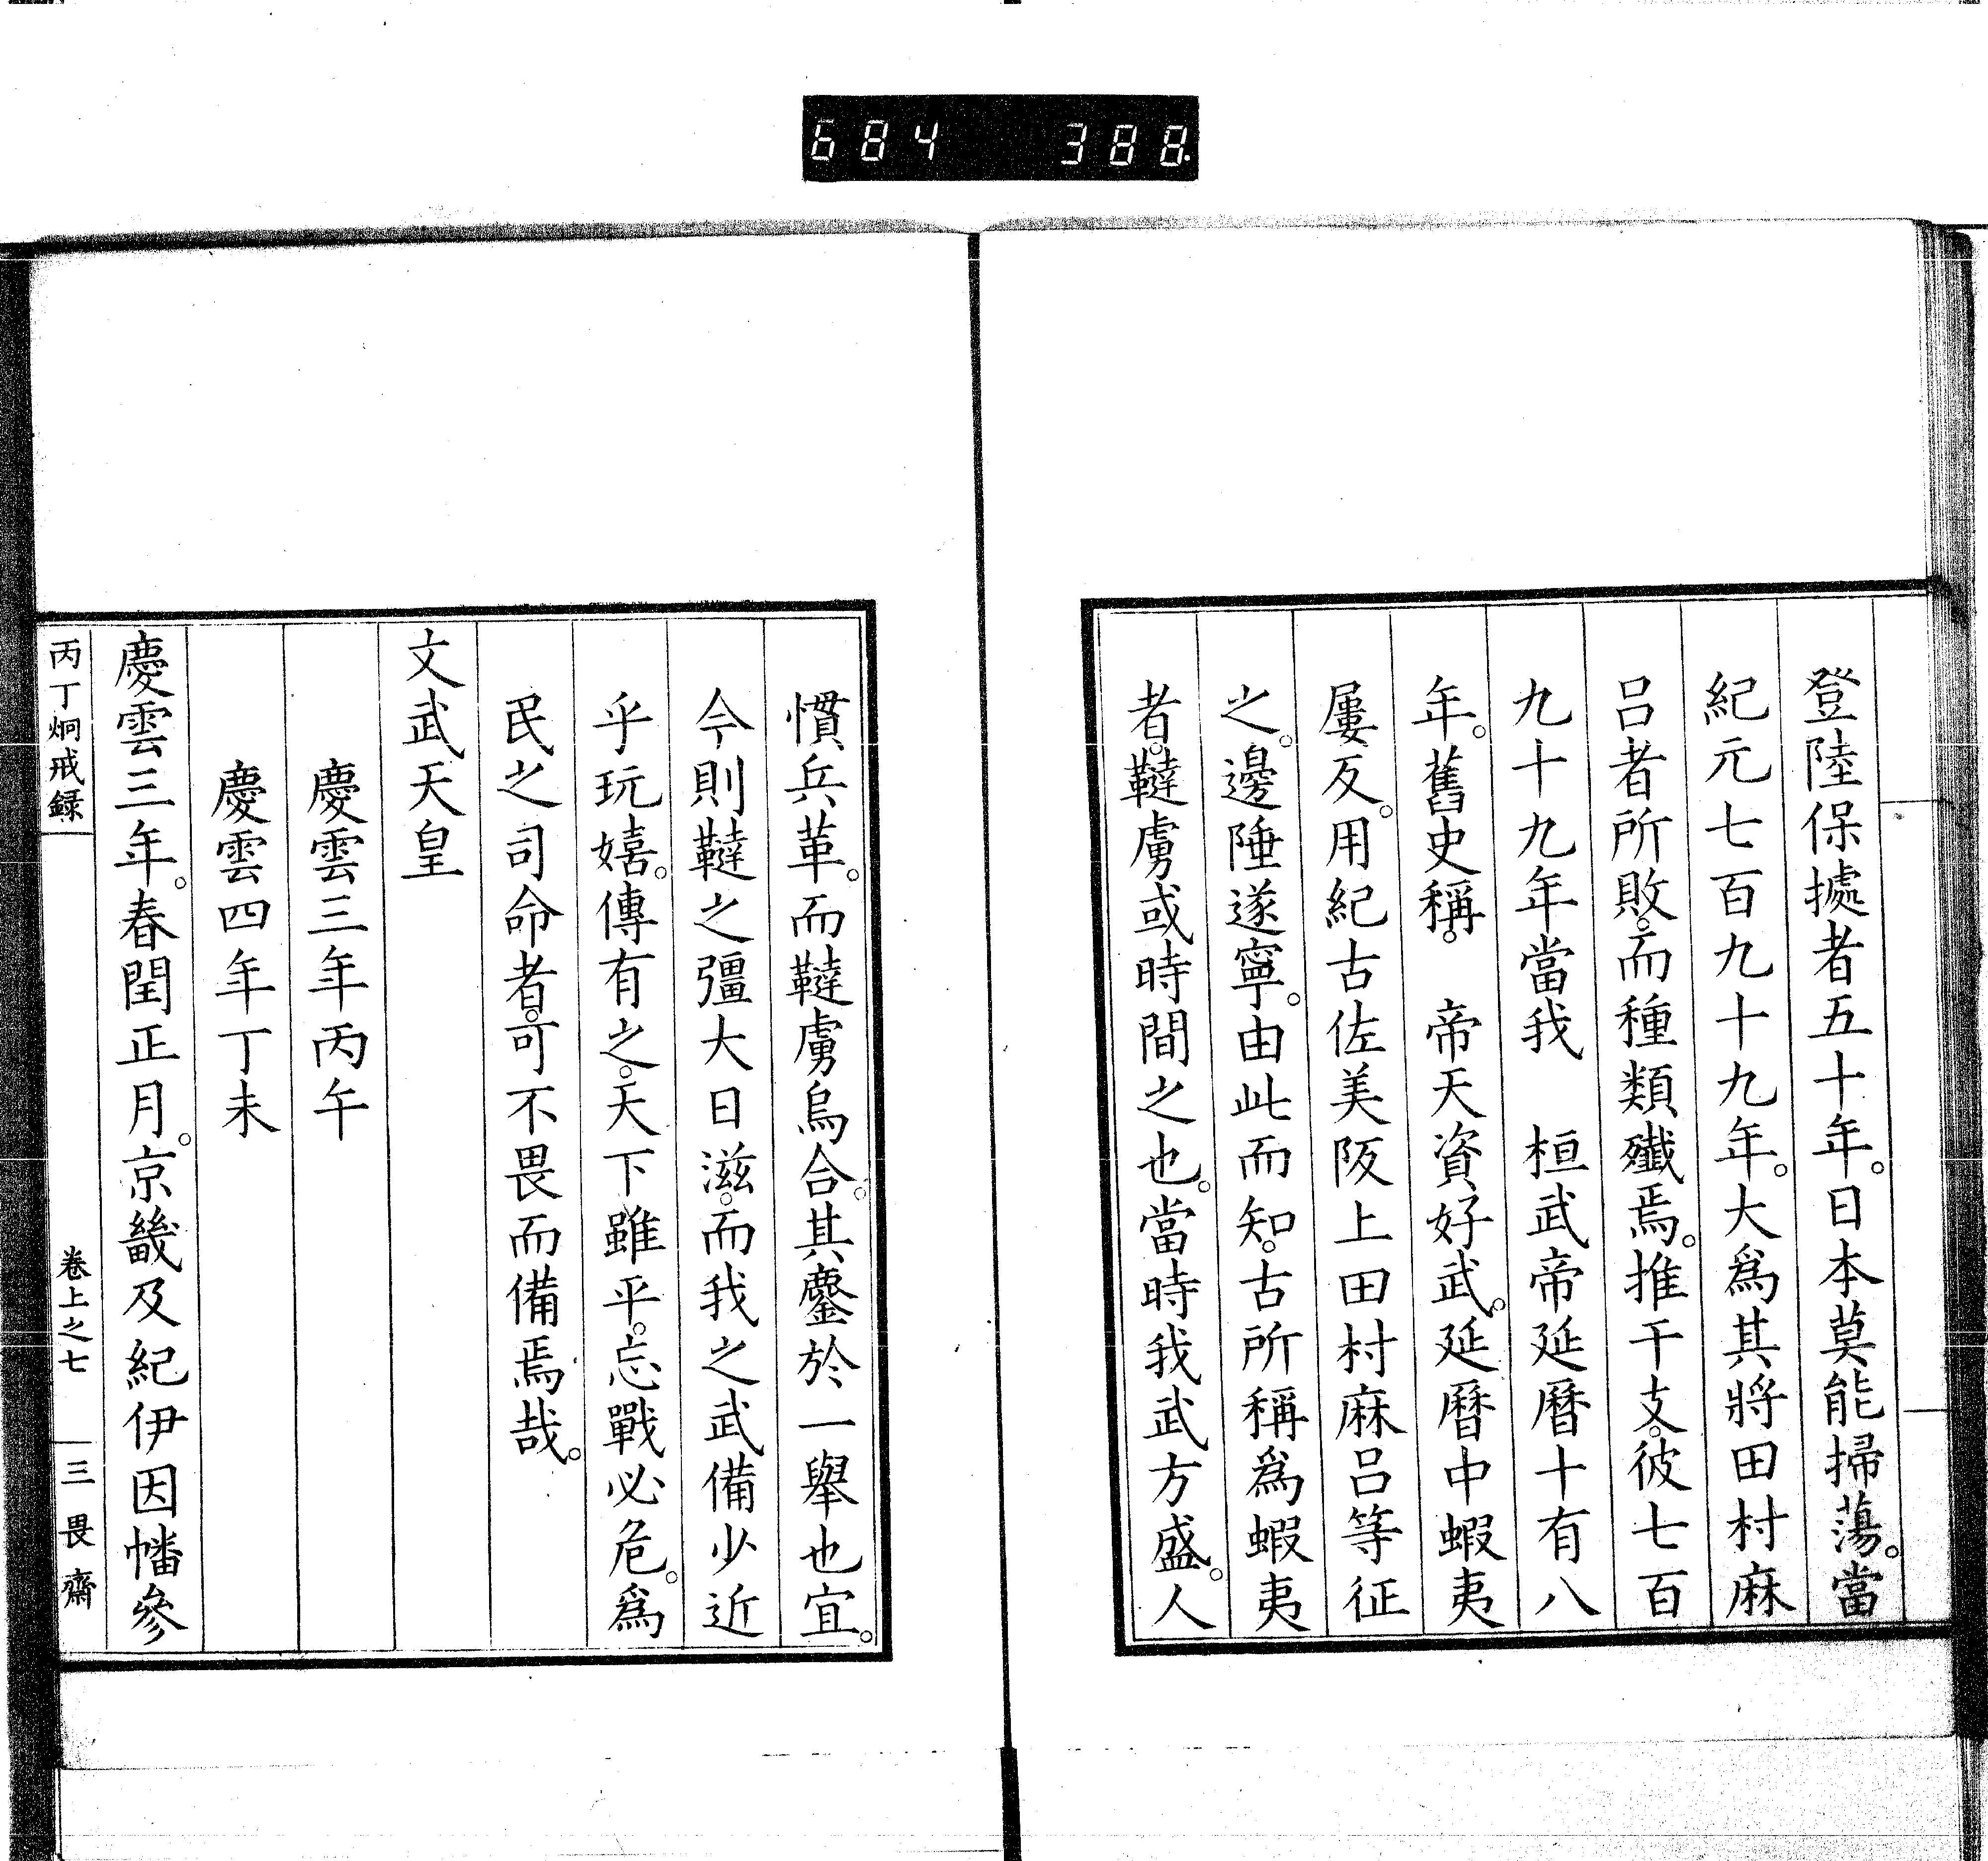 684 388
登陸保據者五十年。日本莫能掃蕩。當
紀元七百九十九年。大爲其將田村麻
呂者所敗。而種類殲焉。推干支。彼七百
九十九年當我　桓武帝延曆十有八
年。舊史稱。　帝天資好武。延曆中蝦夷
屢反。用紀古佐美阪上田村麻呂等征
之。邊陲遂寧。由此而知。古所稱爲蝦夷
者。韃虜或時間之也。當時我武方盛。人
慣兵革。而韃虜烏合。其鏖於一舉也宜。
今則韃之彊大日滋。而我之武備少近
乎玩嬉。傳有之。天下雖平。忘戰必危。爲
民之司命者。可不畏而備焉哉。
文武天皇
慶雲三年丙午
慶雲四年丁未
慶雲三年。春閏正月。京畿及紀伊因幡參
丙丁炯戒録　卷上之七　三畏齋